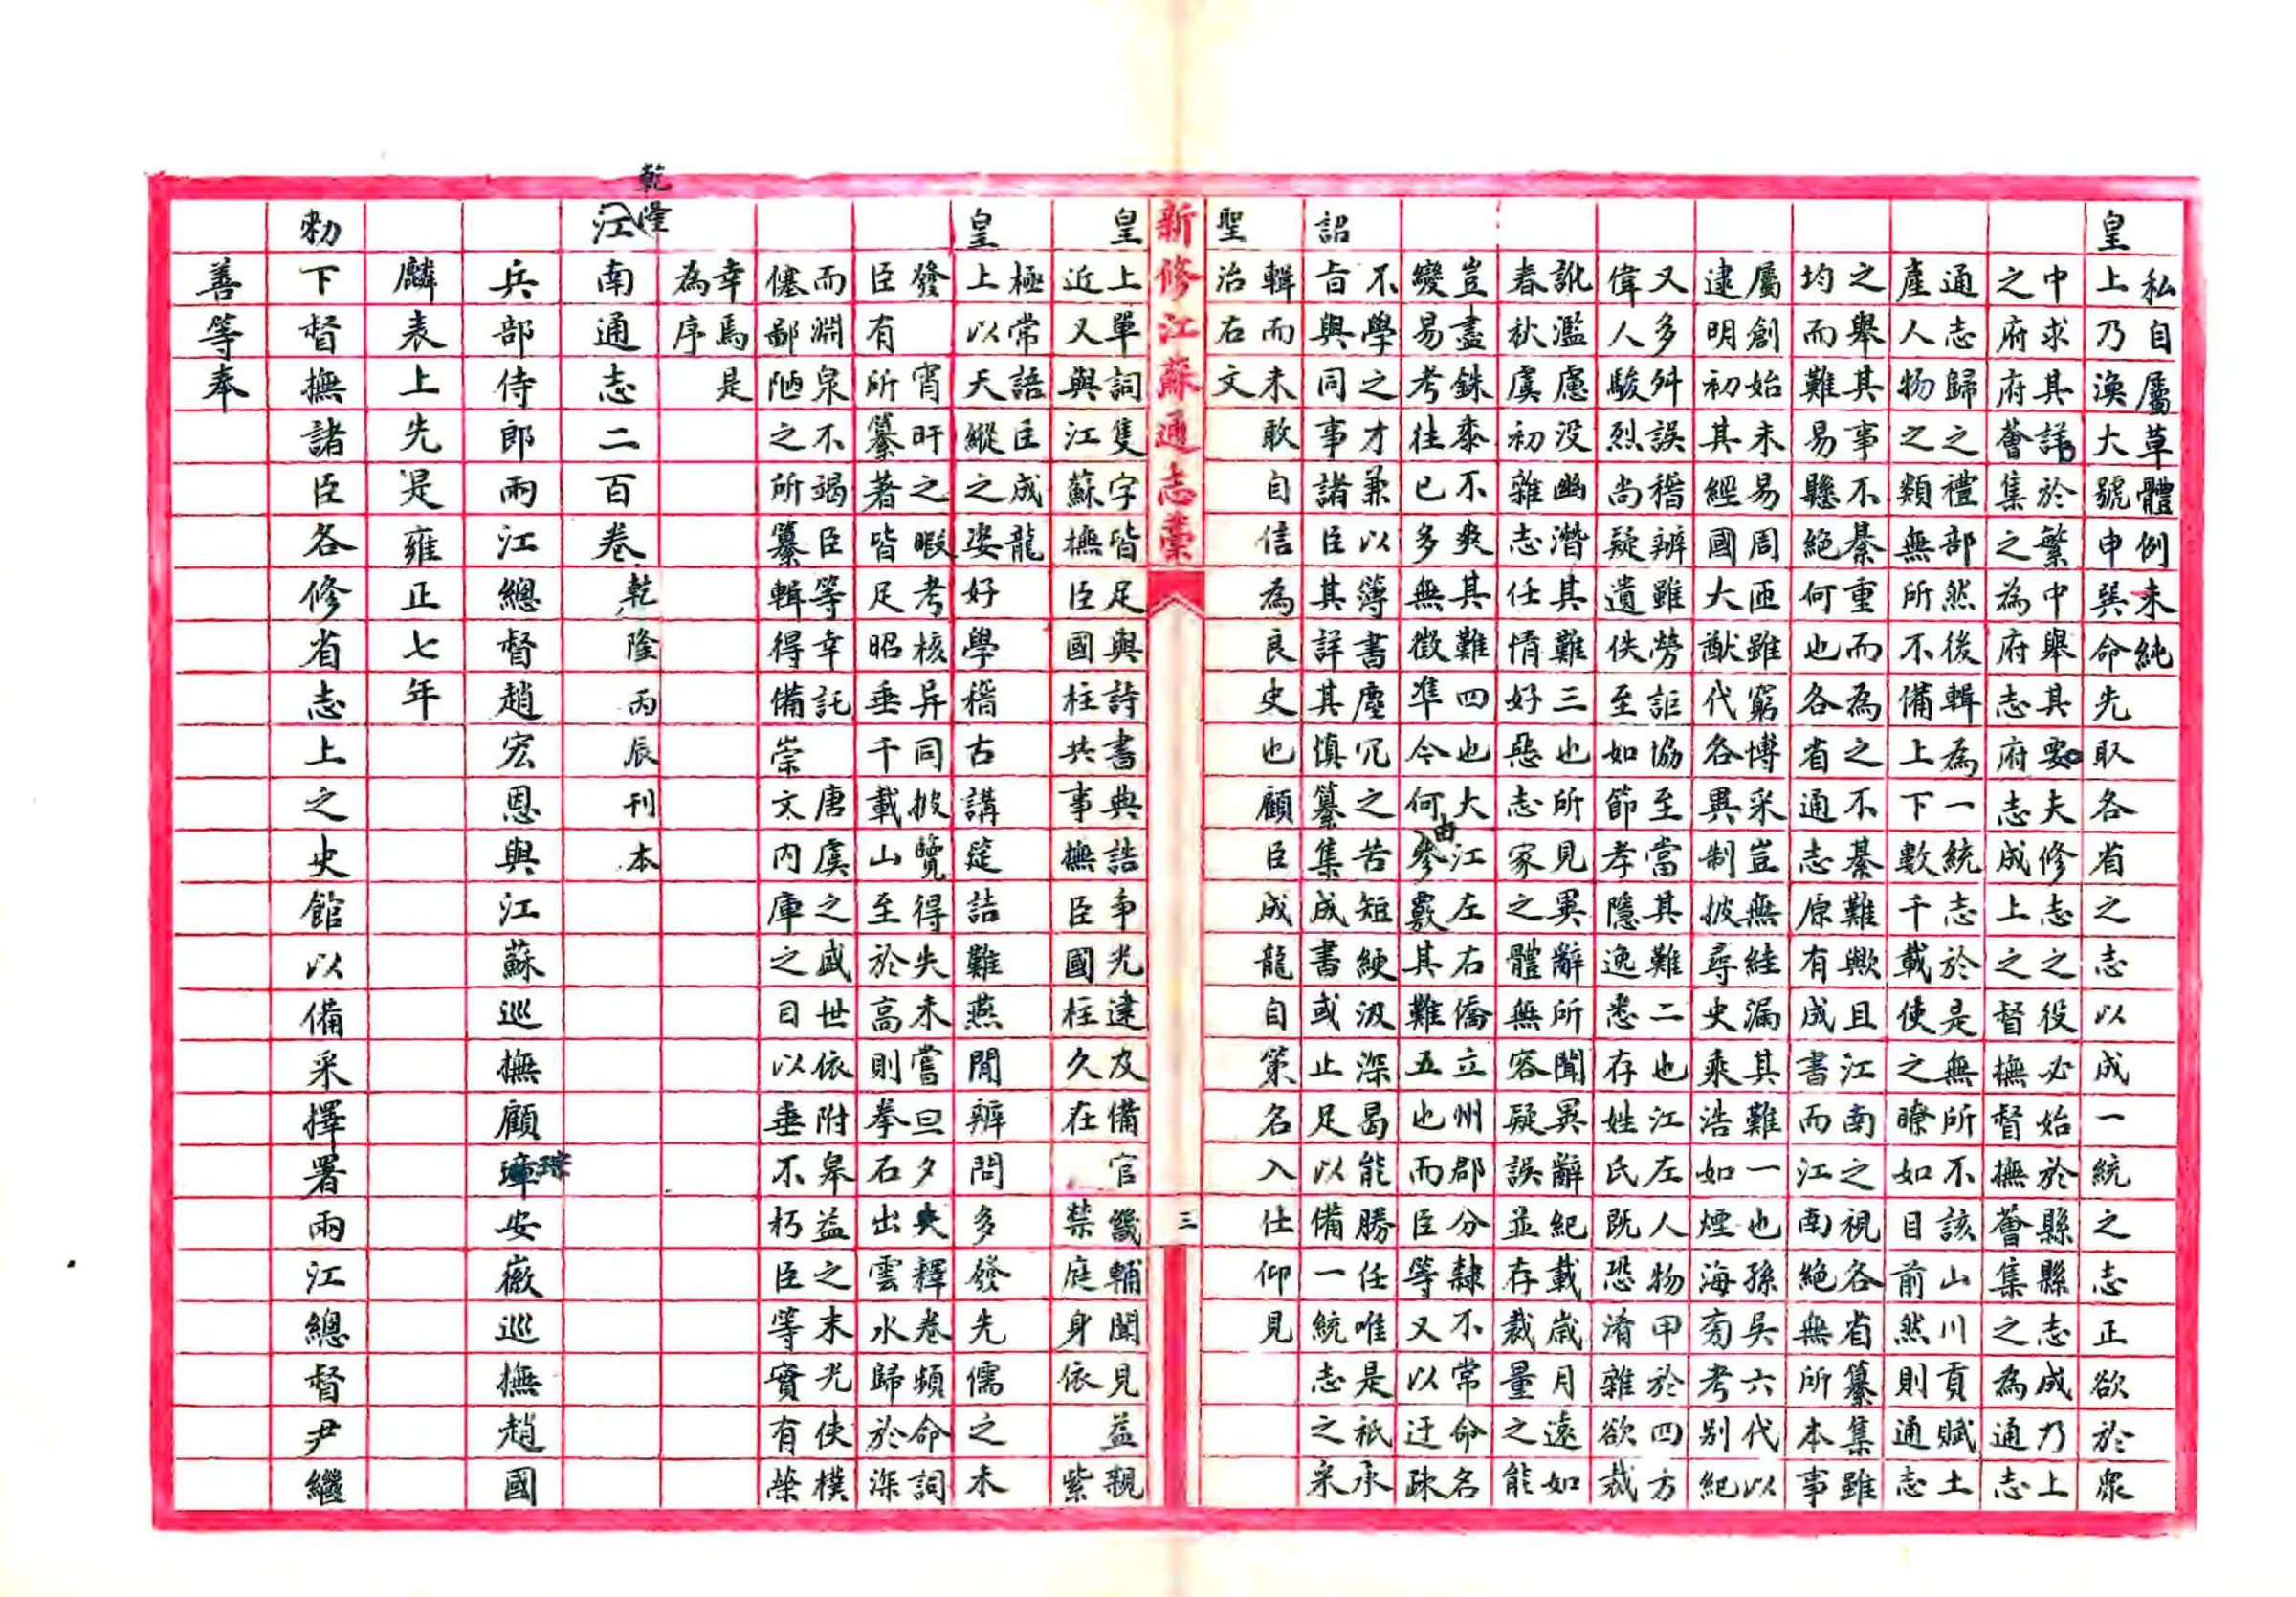 私自屬草體例未純
皇上乃渙大號申巽命先取各省之志以成一統之志正欲於衆
中求其詳於繁中舉其要夫修志之役必始於縣縣志成乃上
之府府薈集之為府志府志成上之督撫督撫薈集之為通志
通志歸之禮部然後輯為一統志於是無所不該山川貢賦土
產人物之類無所不備上下數千載使之瞭如目前然則通志
之舉其事不綦重而為之不綦難歟且江南之視各省纂集雖
均而難易懸絕何也各省通志原有成書而江南絕無所本事
屬創始未易周匝雖窮博采豈無絓漏其難一也孫吳六代以
逮明初其經國大猷代各異制披尋史乘浩如煙海旁考別紀
又多舛誤稽辨雖勞詎協至當其難二也江左人物甲於四方
偉人駿烈尚疑遺佚至如節孝隱逸悉存姓氏既恐淆雜欲裁
訛濫慮没幽潛其難三也所見異辭所聞異辭紀載歲月遠如
春秋虞初雜志任情好惡志家之體無容疑誤並存裁量之能
豈盡銖黍不爽其難四也大江左右僑立州郡分隸不常命名
變易考往已多無徵準今何由參覈其難五也而臣等又以迂疎
不學之才兼以簿書塵冗之苦短綆汲深曷能勝任唯是祇承
詔旨與同事諸臣其詳其慎纂集成書或止足以備一統志之采
輯而未敢自信為良史也顧臣成龍自策名入仕仰見
聖治右文
新修江蘇通志稾
三
皇上單詞隻字皆足與詩書典誥爭光逮及備官畿輔聞見益親
近又與江蘇撫臣國柱共事撫臣國柱久在禁庭身依紫
極常語臣成龍
皇上以天縱之姿好學稽古講筵詰難燕閒辨問多發先儒之未
發宵旰之暇考核异同披覽得失未嘗旦夕夫釋卷頻命詞
臣有所纂著皆足昭垂千載山至於高則拳石出雲水歸於深
而淵泉不竭臣等幸託唐虞之盛世依附皋益之末光使樸
僿鄙陋之所纂輯得備崇文內庫之目以垂不朽臣等實有榮
幸焉是
為序
乾隆江南通志二百卷 乾隆丙辰刊本
兵部侍郎兩江總督趙宏恩與江蘇巡撫顧琮安徽巡撫趙國
麟表上先是雍正七年
勅下督撫諸臣各修省志上之史館以備采擇署兩江總督尹繼
善等奉